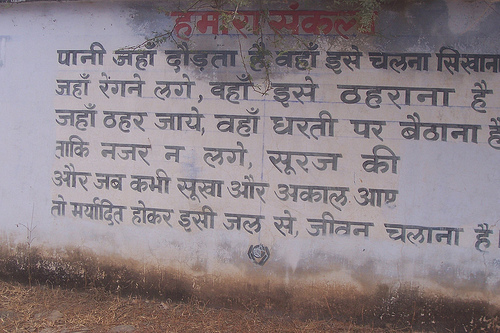 हमारा संकल्प
पानी जहाँ दौड़ता है, वहाँ इसे चलना सिखाना
जहाँ रेंगने लगे, वहाँ इसे ठहराना है
जहाँ ठहर जाये, वहाँ धरती पर बैठाना है
ताकि नजर न लगे, सूरज की
और जब कभी सूखा और अकाल आए
तो मर्यादित होकर इसी जल से, जीवन चलाना है